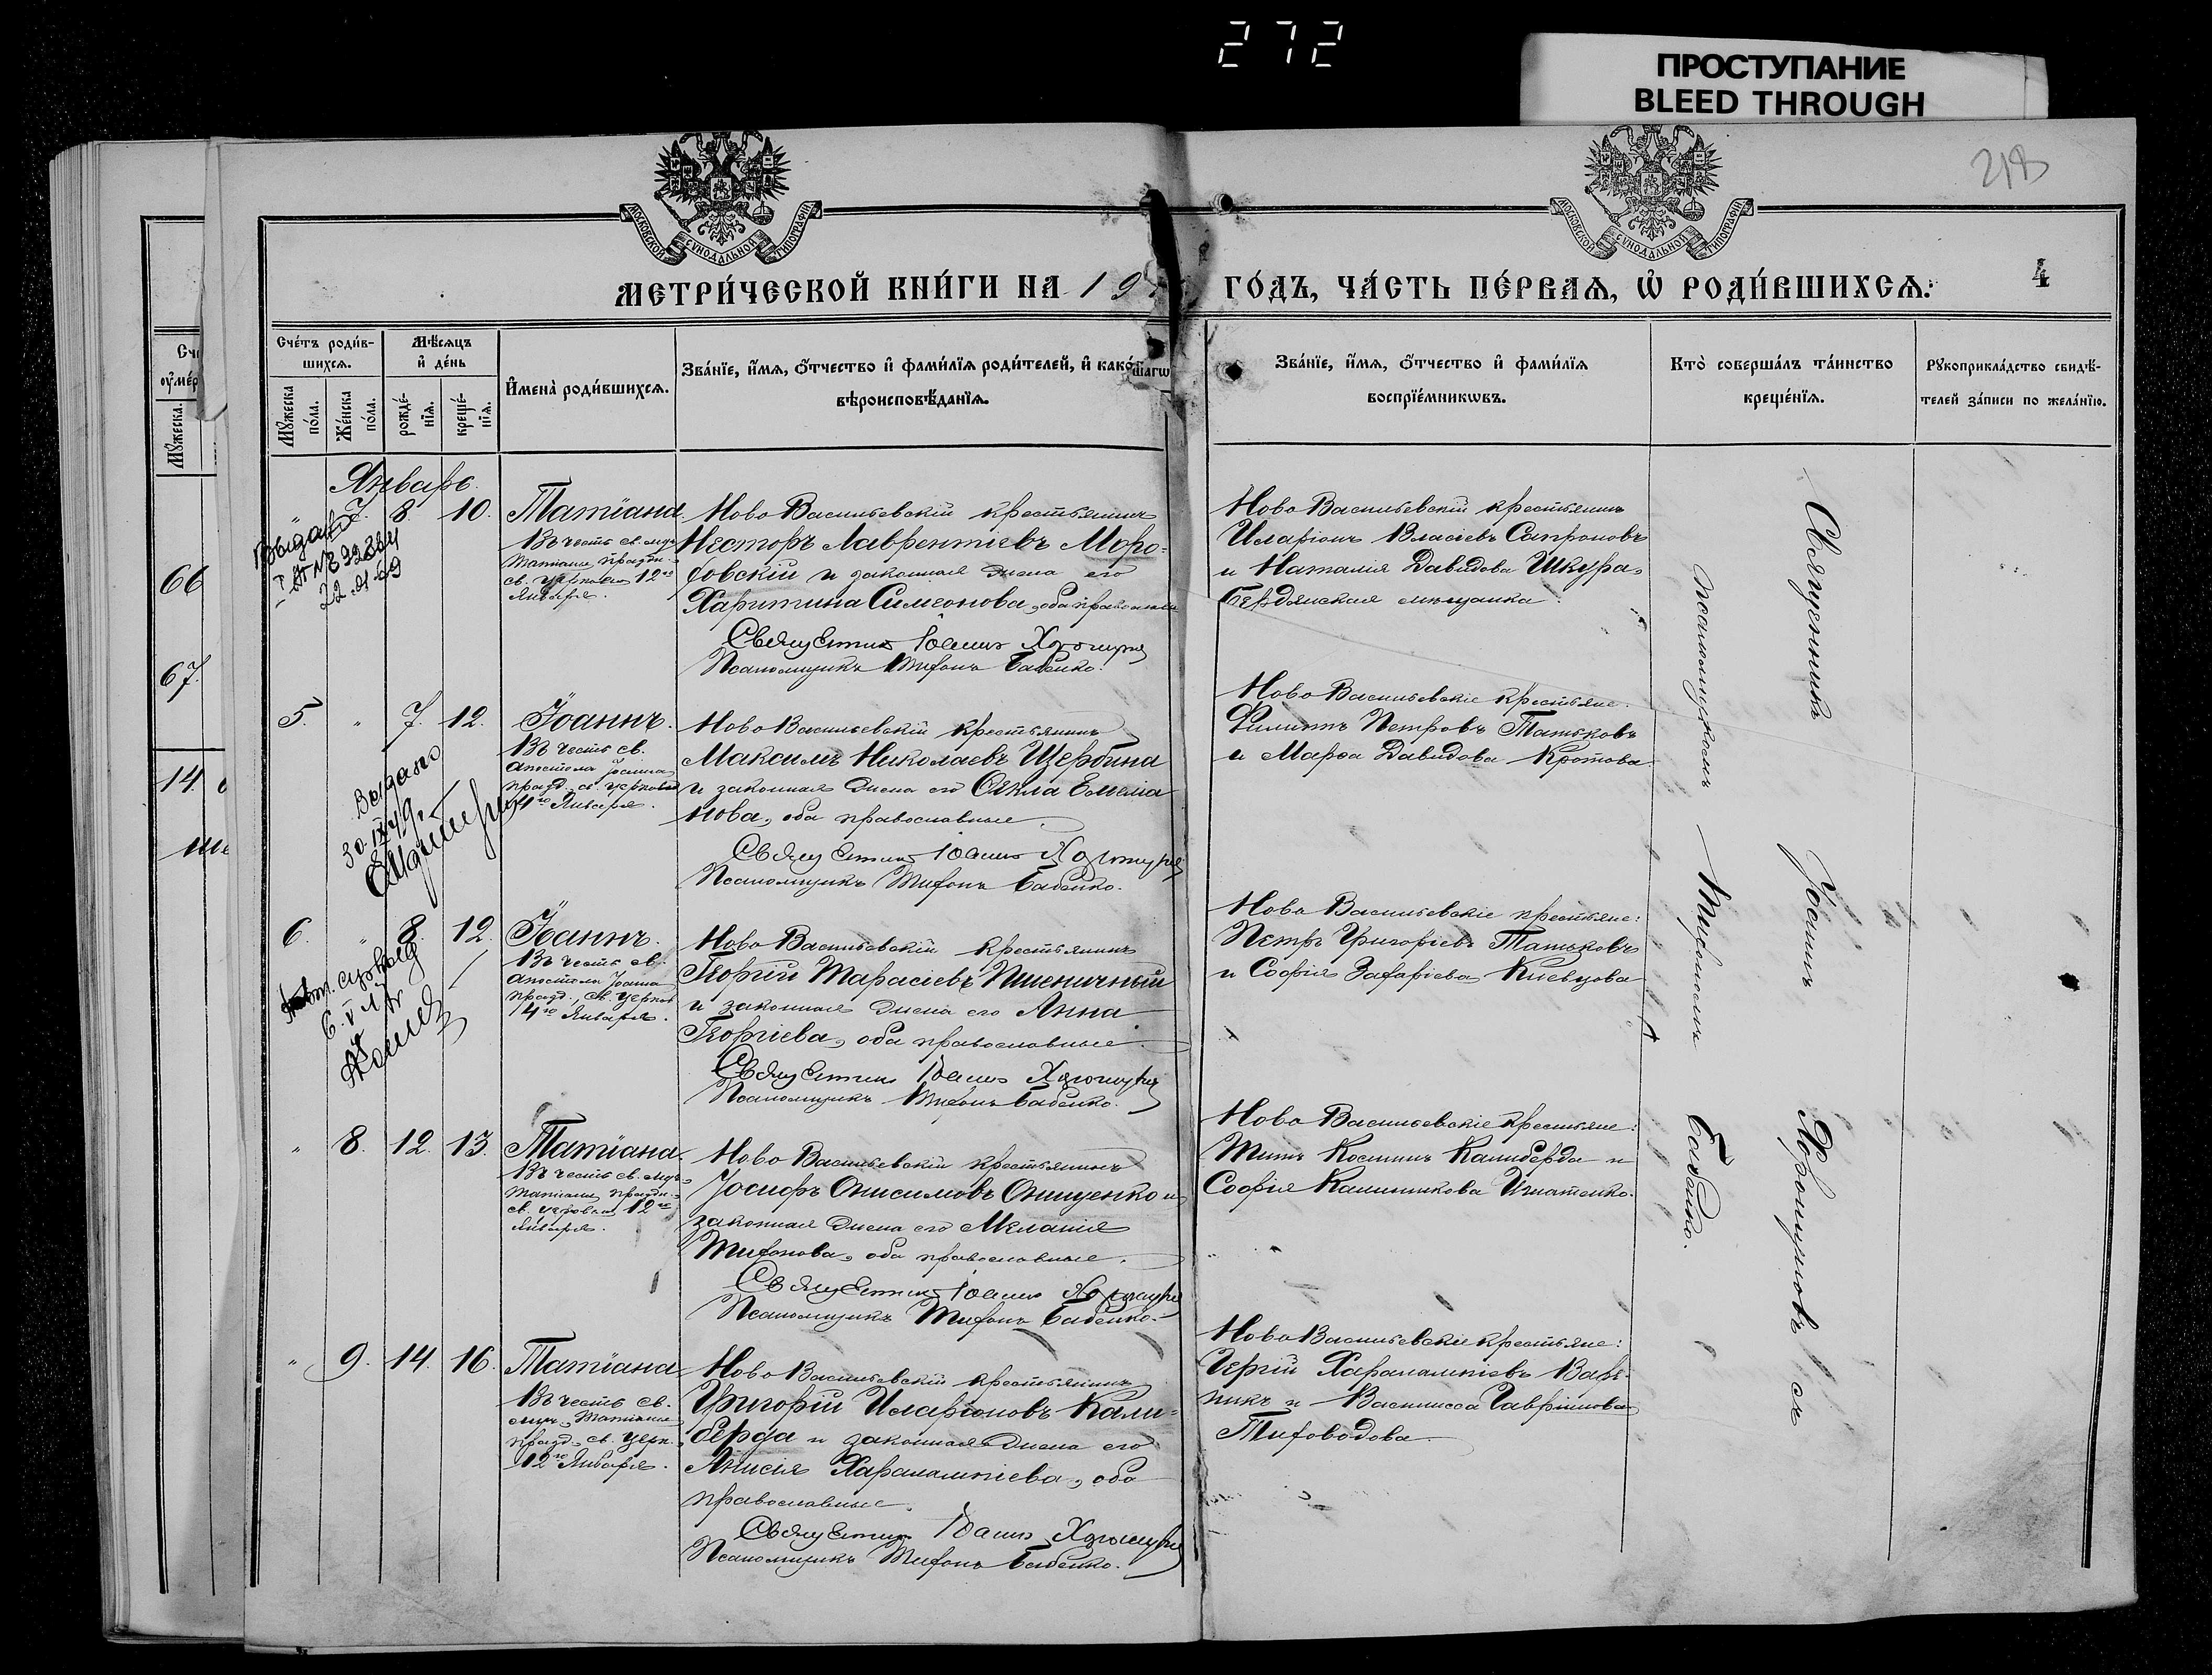 272
ПРОСТУПАНИЕ
BLEED THROUGH
218
МОСКОВСКОЙ СѴНОДАЛЬНОЙ ТИПОГРАФІИ
МОСКОВСКОЙ СѴНОДАЛЬНОЙ ТИПОГРАФІИ
МЕТРИ́ЧЕСКОЙ КНИ́ГИ НА 19
ГО́ДЪ, ЧА́СТЬ ПЕ́РВАѦ, Ѡ҆ РОДИ́ВШИХСѦ.
4
Сче́тъ роди́в-
шихсѧ.
Мꙋжеска
по́ла.
Же́нска
по́ла.
Мѣ́сѧцъ
и҆ де́нь
рожде́-
нїѧ.
креще́-
нїѧ.
И҆мена̀ роди́вшихсѧ.
Зва́нїе, и҆́мѧ, ѻ҆́тчество и҆ фами́лїѧ роди́телей, и҆ како́
вѣроисповѣ́данїѧ.
Зва́нїе, и҆́мѧ, ѻ҆́тчество и҆ фами́лїѧ
воспрїе́мникѡвъ.
Кто̀ соверша́лъ та́инство
креще́нїѧ.
Рꙋкоприкла́дство свидѣ́-
телей за́писи по жела́нїю.
Мꙋжеска.
66
67.
14.
Январь.
" 7. 8. 10. Татіана.
Въ честь св. муч.
Татіаны праздн.
св. церковію 12го
Января.
Ново Васильевскій крестьянинъ
Несторъ Лаврентіевъ Моро-
зовскій и законная жена его
Харитина Симеонова, оба православные
Священникъ Іоаннъ
Псаломщикъ Тифонъ Бабенко.
Ново Васильевскій крестьянинъ
Иларіонъ Власіевъ Сапроновъ
и Наталія Давидова Шкура,
Бердянская мѣщанка.
5. " 7. 12. Іоаннъ.
Въ честь св.
Апостола Іоанна
празд. св. церковію
Января.
Выдано
Ново Васильевскій крестьянинъ
Максимъ Николаевъ Щербина
и законная жена его Ѳекла Емелія-
нова, оба православные
Священникъ Іоаннъ
Псаломщикъ Тифонъ Бабенко.
Ново Васильевскіе крестьяне:
Филиппъ Петровъ Татьковъ
и Марѳа Давидова Кротова.
6. " 8. 12. Іоаннъ.
Въ честь св.
Апостола Іоанна
празд., св. церков.
14го Января.
Ново Васильевскій крестьянинъ
Георгій Тарасіевъ Пшеничный
и законная жена его Анна
Георгіева, оба православные.
Священникъ Іоаннъ
Псаломщикъ Тифонъ Бабенко.
Ново Васильевскіе крестьяне:
Петръ Григоріевъ Татьковъ
и Софія Захаріева Киевцова
" 8. 12. 13. Татіана.
Въ честь св. муч.
Татіаны праздн.
св. церковію 12го
Января.
Ново Васильевскій крестьянинъ
Іосифъ Онисимовъ Онищенко и
законная жена его Меланія
Тифонова, оба православные.
Священникъ Іоаннъ
Псаломщикъ Тифонъ Бабенко.
Ново Васильевскіе крестьяне:
Титъ Косминъ Калиберда и
Софія Калиникова Игнатенко.
" 9. 14. 16. Татіана
Въ честь св.
муч. Татіаны
празд. св. церк.
12го Января.
Ново Васильевскій крестьянинъ
Григорій Иларіоновъ Кали-
берда и законная жена его
Анисія Харалампіева, оба
православные.
Священникъ Іоаннъ
Псаломщикъ Тифонъ Бабенко.
Ново Васильевскіе крестьяне:
Сергій Харалампіевъ Варе-
никъ и Василисса Гавріилова
Тифоводова.
Священникъ Іоаннъ Хорошуновъ съ
псаломщикомъ Тифономъ Бабенко.